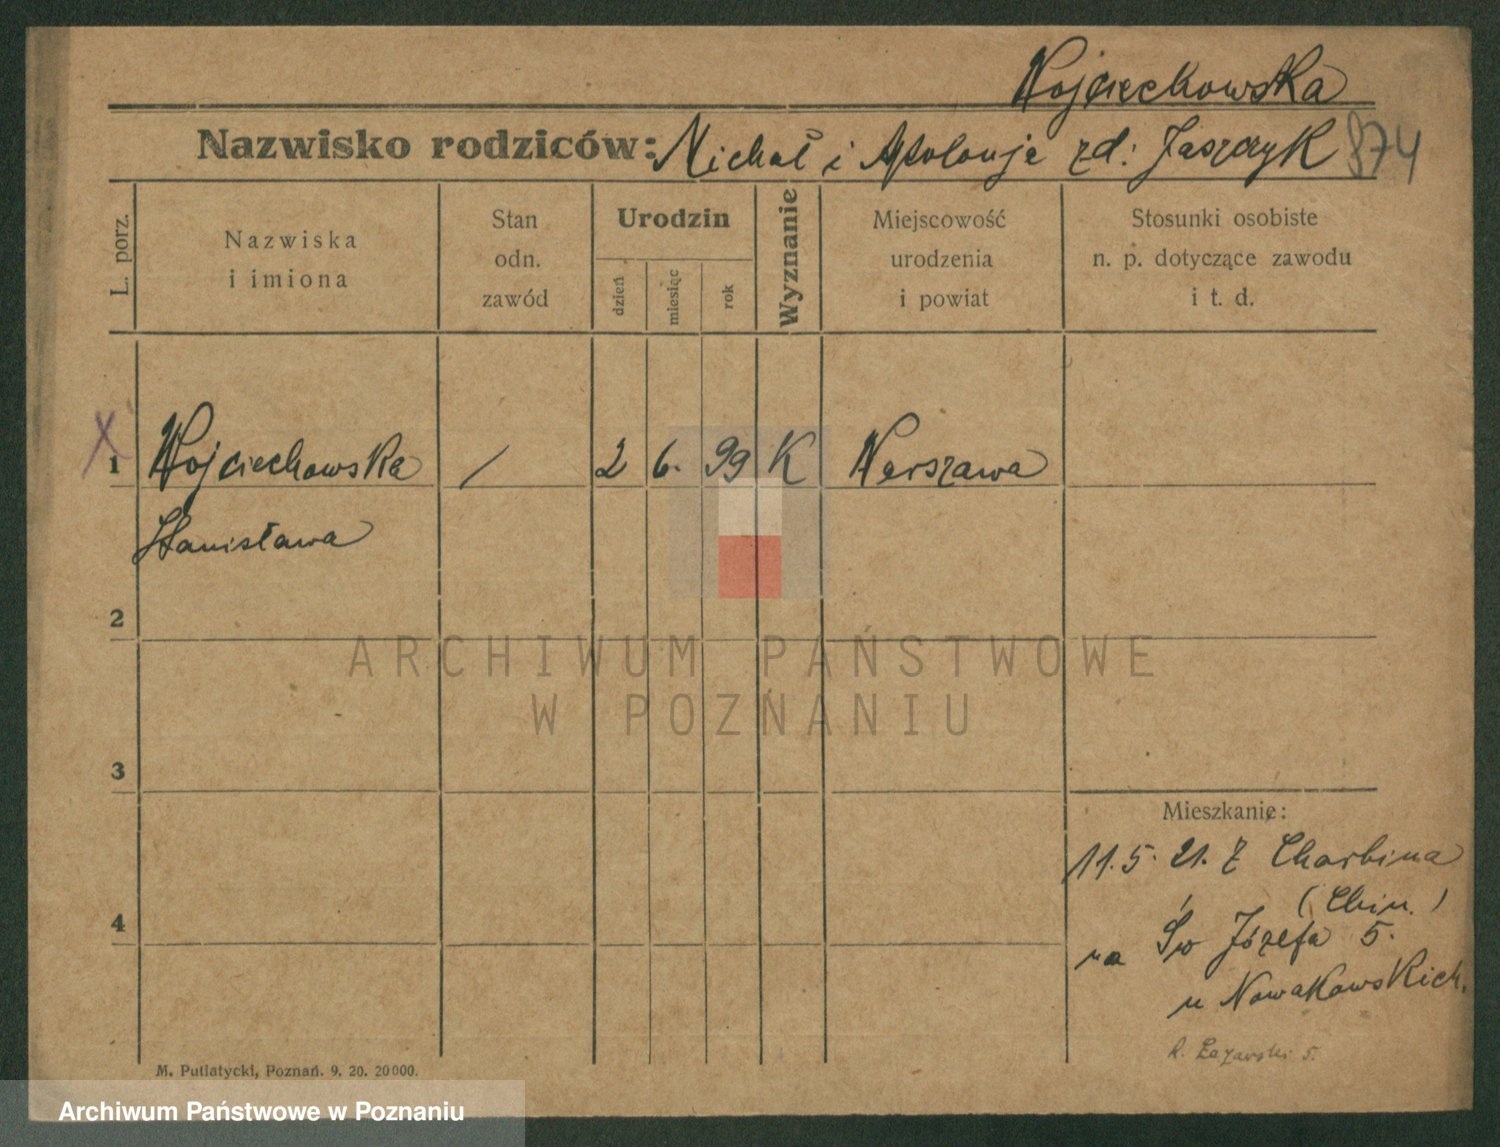 Wojciechowska
Nazwisko rodziców: Michał i Apolonja zd: Jaszczyk 874
L. porz.
Nazwiska
i imiona
Stan
odn.
zawód
Urodzin
dzień
miesiąc
rok
Wyznanie
Miejscowość
urodzenia
i powiat
Stosunki osobiste
n. p. dotyczące zawodu
i t. d.
X
1 Wojciechowska / 2 6. 99 K Warszawa
Stanisława
2
ARCHIWUM PAŃSTWOWE
W POZNANIU
3
Mieszkanie:
11.5.21. Z Charbina
(Chin.)
4
na Św Józefa 5.
u Nowakowskich.
R. 5.
M. Putiatycki, Poznań. 9. 20. 20000.
Archiwum Państwowe w Poznaniu